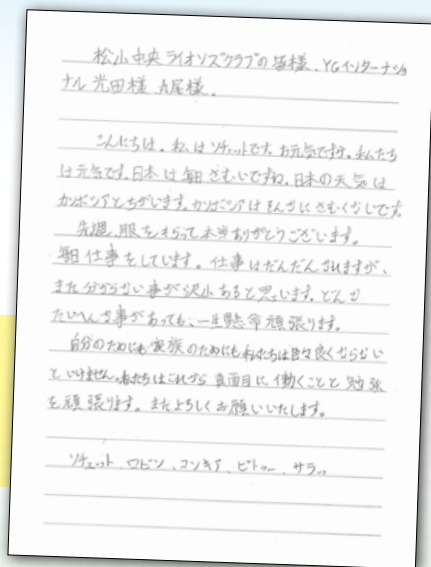 松山中央ライオンズクラブの皆様、YGインターナショ
ナル 光田様 丸尾様。
こんにちは。私はソチェットです。お元気ですか。私たち
は元気です。日本は毎日さむいですね。日本の天気は
カンボジアとちがいます。カンボジアはそんなにさむくないです。
先週、服をもらって本当ありがとうございます。
毎日仕事をしています。仕事はだんだんなれますが、
まだ分からない事が沢山あると思います。どんな
たいへんな事があっても、一生懸命頑張ります。
自分のためにも家族のためにも私たちは色々良くならない
といけません。私たちはこれから真面目に働くことと勉強
を頑張ります。またよろしくお願いいたします。
ソチェット、ロビン、コンキア、ピトゥー、サラッ